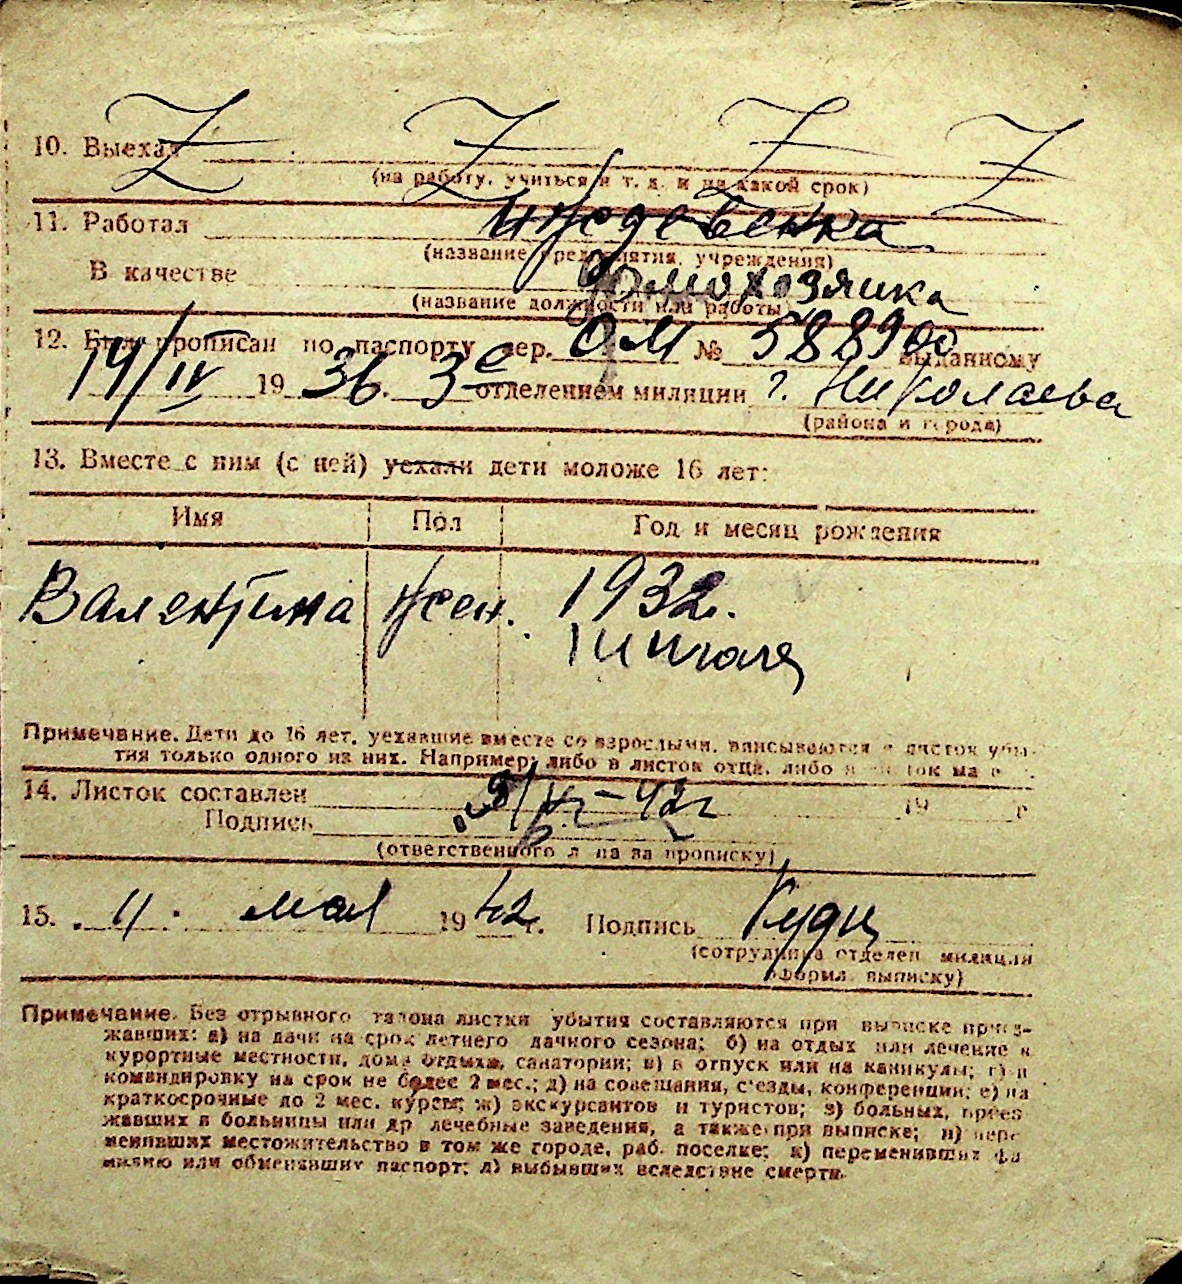 10. Выехал
(на работу, учиться и т. д. и на какой срок)
11. Работал иждевенка
(название предприятия, учреждения)
В качестве домохозяика
(название должности или работы)
12. Был прописан по паспорту сер. ОМ № 588900 выданному
14/IV 1936. 3е отделением милиции г. Николаева
(района и города)
13. Вместе с ним (с ней) уехали дети моложе 16 лет:
Имя Пол Год и месяц рождения
Валентина жен. 1932.
июля
Примечание. Дети до 16 лет, уехавшие вместе со взрослыми, вписываются в листок убы-
тия только одного из них. Например: либо в листок отца, либо в листок матери.
14. Листок составлен 9/V-42г 19 г
Подпись
(ответственного лица за прописку)
15. 11. мая 1942 г. Подпись
(сотрудника отделен. милиции
оформил выписку)
Примечание. Без отрывного талона листки убытия составляются при выписке приез-
жавших: а) на дачи на срок летнего дачного сезона; б) на отдых или лечение в
курортные местности, дома отдыха, санатории; в) в отпуск или на каникулы; г) в
командировку на срок не более 2 мес.; д) на совещания, с'езды, конференции; е) на
краткосрочные до 2 мес. курсы; ж) экскурсантов и туристов; з) больных, приез-
жавших в больницы или др лечебные заведения, а также при выписке; и) пере-
менивших местожительство в том же городе, раб. поселке; к) переменивших фа-
милию или обменявших паспорт; л) выбывших вследствие смерти.